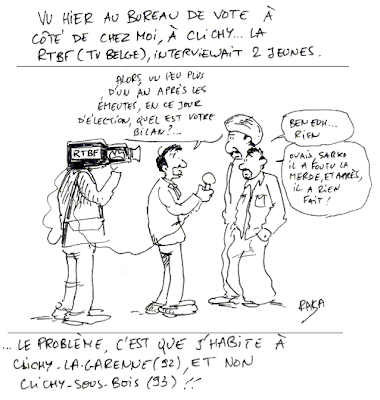 VU HIER AU BUREAU DE VOTE À
CÔTÉ DE CHEZ MOI, À CLICHY... LA
RTBF (TV BELGE), INTERVIEWAIT 2 JEUNES.
ALORS UN PEU PLUS
D'UN AN APRÈS LES
ÉMEUTES, EN CE JOUR
D'ÉLECTION, QUEL EST VOTRE
BILAN ?...
BEN EUH...
RIEN
OUAIS, SARKO
IL A FOUTU LA
MERDE, ET APRÈS,
IL A RIEN
FAIT !
RTBF
RAKA
... LE PROBLÈME, C'EST QUE J'HABITE À
CLICHY-LA-GARENNE (92), ET NON
CLICHY-SOUS-BOIS (93) !!